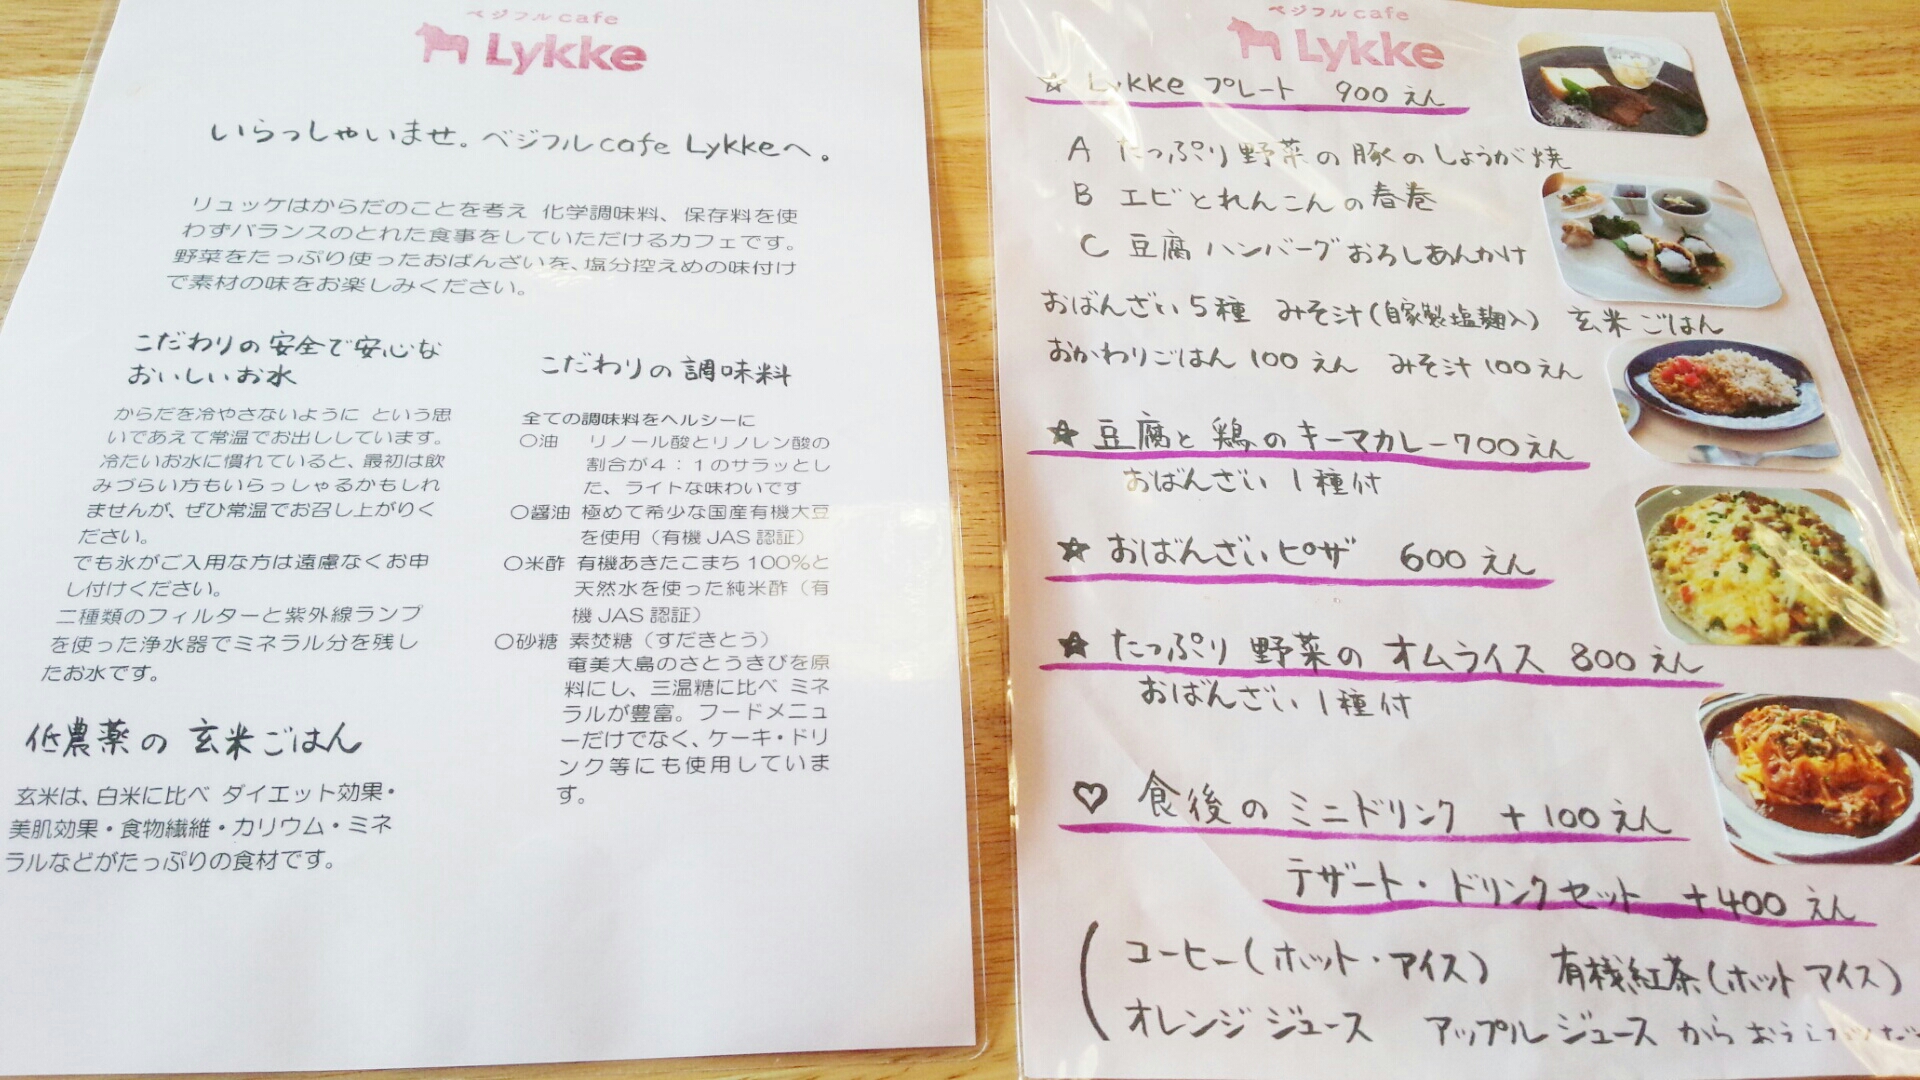 ベジフルcafe
Lykke
いらっしゃいませ。ベジフルcafe Lykkeへ。
リュッケはからだのことを考え 化学調味料、保存料を使
わずバランスのとれた食事をしていただけるカフェです。
野菜をたっぷり使ったおばんざいを、塩分控えめの味付け
で素材の味をお楽しみください。
こだわりの安全で安心な
おいしいお水
からだを冷やさないように という思
いであえて常温でお出ししています。
冷たいお水に慣れていると、最初は飲
みづらい方もいらっしゃるかもしれ
ませんが、ぜひ常温でお召し上がりく
ださい。
でも氷がご入用な方は遠慮なくお申
し付けください。
二種類のフィルターと紫外線ランプ
を使った浄水器でミネラル分を残し
たお水です。
低農薬の玄米ごはん
玄米は、白米に比べ ダイエット効果・
美肌効果・食物繊維・カリウム・ミネ
ラルなどがたっぷりの食材です。
こだわりの調味料
全ての調味料をヘルシーに
○油 リノール酸とリノレン酸の
割合が4：1のサラッとし
た、ライトな味わいです
○醤油 極めて希少な国産有機大豆
を使用（有機JAS認証）
○米酢 有機あきたこまち100%と
天然水を使った純米酢（有
機JAS認証）
○砂糖 素焚糖（すだきとう）
奄美大島のさとうきびを原
料にし、三温糖に比べ ミネ
ラルが豊富。フードメニュ
ーだけでなく、ケーキ・ドリ
ンク等にも使用していま
す。
ベジフルcafe
Lykke
☆ Lykke プレート 900えん
A たっぷり野菜の豚のしょうが焼
B エビとれんこんの春巻
C 豆腐ハンバーグおろしあんかけ
おばんざい5種 みそ汁（自家製塩麹入） 玄米ごはん
おかわりごはん100えん みそ汁100えん
★ 豆腐と鶏のキーマカレー700えん
おばんざい1種付
★ おばんざいピザ 600えん
★ たっぷり野菜のオムライス 800えん
おばんざい1種付
♡ 食後のミニドリンク +100えん
デザート・ドリンクセット +400えん
コーヒー（ホット・アイス） 有機紅茶（ホット アイス）
オレンジジュース アップルジュース から